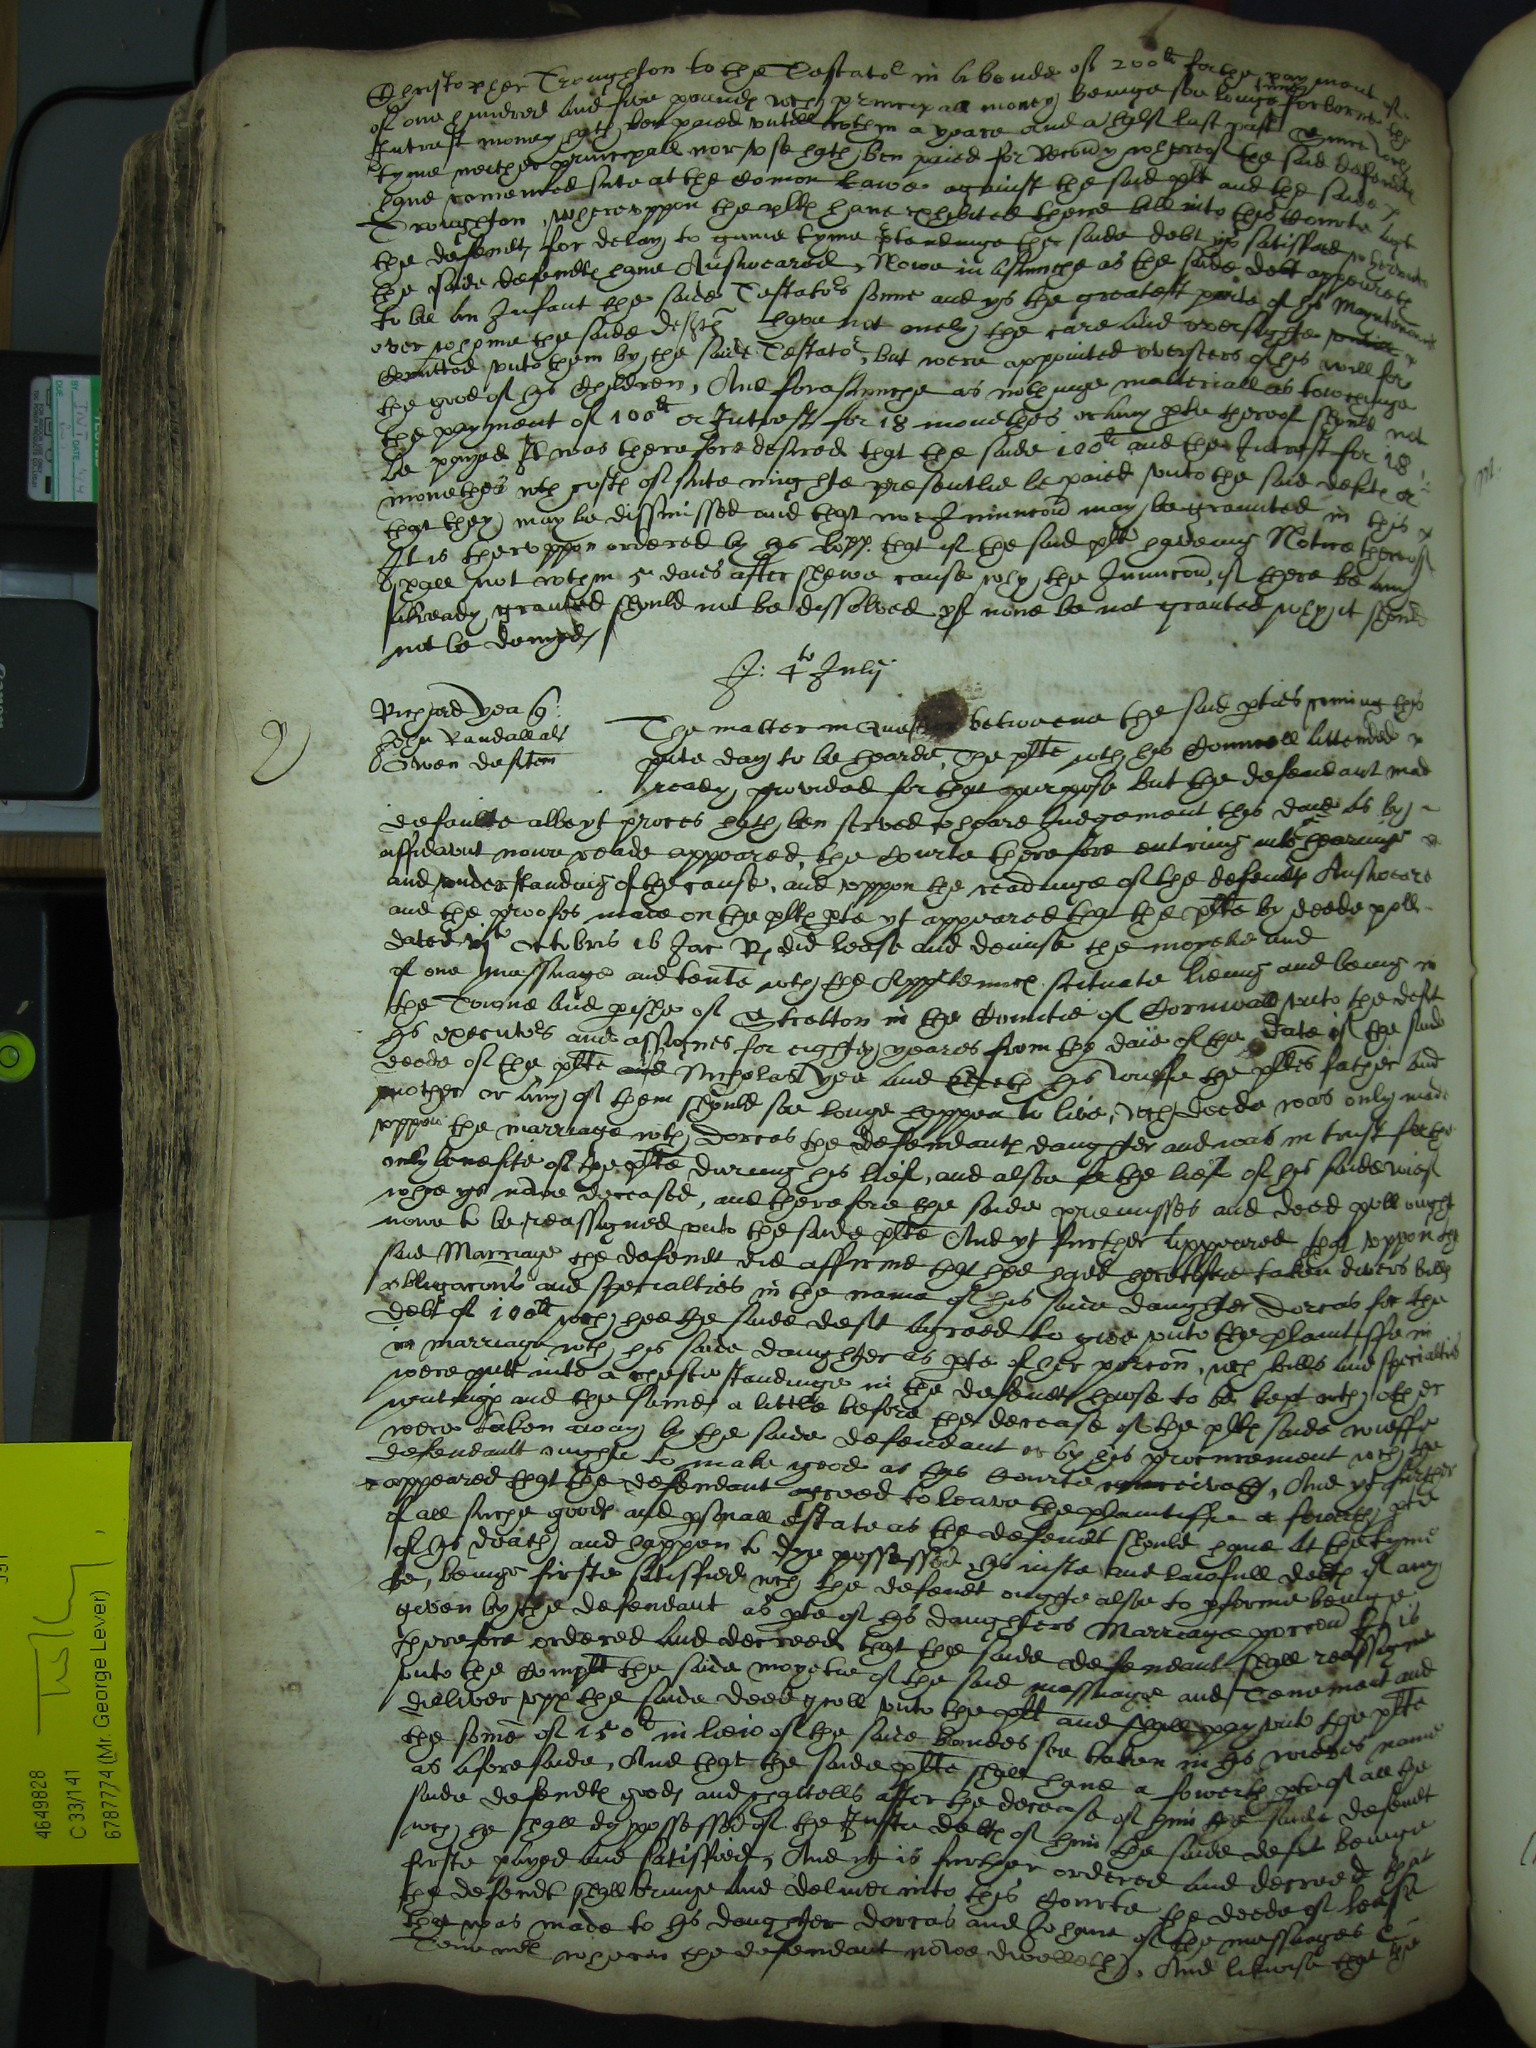 Christopher Troughton to the Testator in a bonde of 200li for the payment of
of one hundred and five poundes wch principall money beinge soe longe forborne the
Intrest money hath ben paied untill wthin a yeare and a halfe last past since wch
tyme neither principall nor use hath ben paied for Recovry whereof the said defendtes
have comenced sute at the comon Lawe against the said plt and the saide
Troughton, whereuppon the pltes have exhibited there bill into this Courte against
the defendtes for delay to gaine tyme pretendinge the saide debt is satisfied whereunto
the saide defendtes have Answeared, Nowe in asmuche as the saide debt appeareth
to be an Infant the saide Testators sonne and ys the greatest parte of his Mayntenance
over whome the saide deftes have not onely the care and oversighte
comitted unto them by the saide Testator, but were appointed overseers of his will for
the good of his Children, And forasmuche as nothinge materiall as towchinge
the payment of 100li or Intrest for 18 monethes or any pte thereof should not
be payed It was therefore desired that the saide 100li and the Intrest for 18
monethes wth costes of sute mighte presentlie be paied unto the said deftes or
that they may be dissmissed and that noe Iniunccon may be graunted in this
It is theruppon ordered by his Lopp. that if the said plt haveing Notice thereof
shall not wthin 5 daies after shewe cause why the Iniunccon, if there be any
already graunted should not be dissolved yf none be not graunted why it should
not be denyed
J: 4to July
Richard Yea q:
John Randall als
Owen defttem
The matter in Question betweene the said pties coming this
pnte day to be hearde, The plte wth his Councell attended
ready provided for that purpose but the defendant made
defaulte albeyt proces hath ben served to heare Judgement this daie as by
affidavit nowe reade appeared, the Courte therefore entring into the hearinge
and understanding of the cause, and uppon the readinge of the defendtes Answeare
and the proofes made on the pltes pte yt appeared that the plte by deede poll
dated Octobris 16 Jac Rs did lease and demise the moyetie and
of one messuage and tente wth the Appurtennces scituate lieing and being in
the Towne and pishe of Stratton in the Countie of Cornwall unto the deft
his executors and assignes for eighty yeares from the daie of the date of the said
deede of the plte and Nicholas Yea and his wieffe the pltes father and
mother or any of them should soe longe happen to live, wch deede was only made
uppon the marriage wth Dorcas the defendantes daughter and was in trust for the
only benefite of the plte during his lief, and alsoe for the lief of his saide wief
whoe ys nowe deceased, and therefore the saide premisses and deed poll ought
nowe to be reassigned unto the saide plte And yt further appeared that uppon the
said Marriage the defendt did affirme that hee had heretofore taken divers bills
obligacons and specialties in the name of his saide daughter Dorcas for the
debt of 100li wch hee the saide deft agreed to give unto the plaintiffe in
in marriage wth his saide daughter as pte of her porcon, wch bills and specialties
were putt into a cheste standinge in the defendtes house to be kept wth other
writinges and the same a little before the decease of the pltes saide wieffe
were taken away by the saide defendant or by his procurement wch the
defendault ought to make good as this Courte conceiveth, And yt further
appeared that the defendant agreed to leave the plaintiffe a fowerth pte
of all suche goodes and psonall Estate as the defendt should have at the tyme
of his death and happen to dye possessed, his juste and lawfull debtes if any
be, beinge firste satisfied wch the defendt oughte alsoe to pforme beinge
given by the defendant as pte of his daughters Marriage porcon It is
therefore ordered and decreed that the saide defendant shall reassigne
unto the Complt the saide moyetie of the said messuage and Tenement and
deliver upp the saide deed poll unto the plt and shall pay unto the plte
the some of 150li in liew of the saide bondes soe taken in his wiefes name
as aforesaide, And that the saide plte shall have a fowerth pte of all the
saide defendtes goodes and chattells after the decease of him the saide defendt
wch he shall dy possessed of the Juste debtes of him the saide deft beinge
firste payed and satisfied, And yt is further ordered and decreed that
the defendt shall bringe and deliver into this Courte the deede of lease
that was made to his daughter Dorcas and Johane of the messuages &
Tenemtes wherein the defendant nowe dwelleth, And likewise that the
4649828
C 33/141
6787774 (Mr. George Lever)